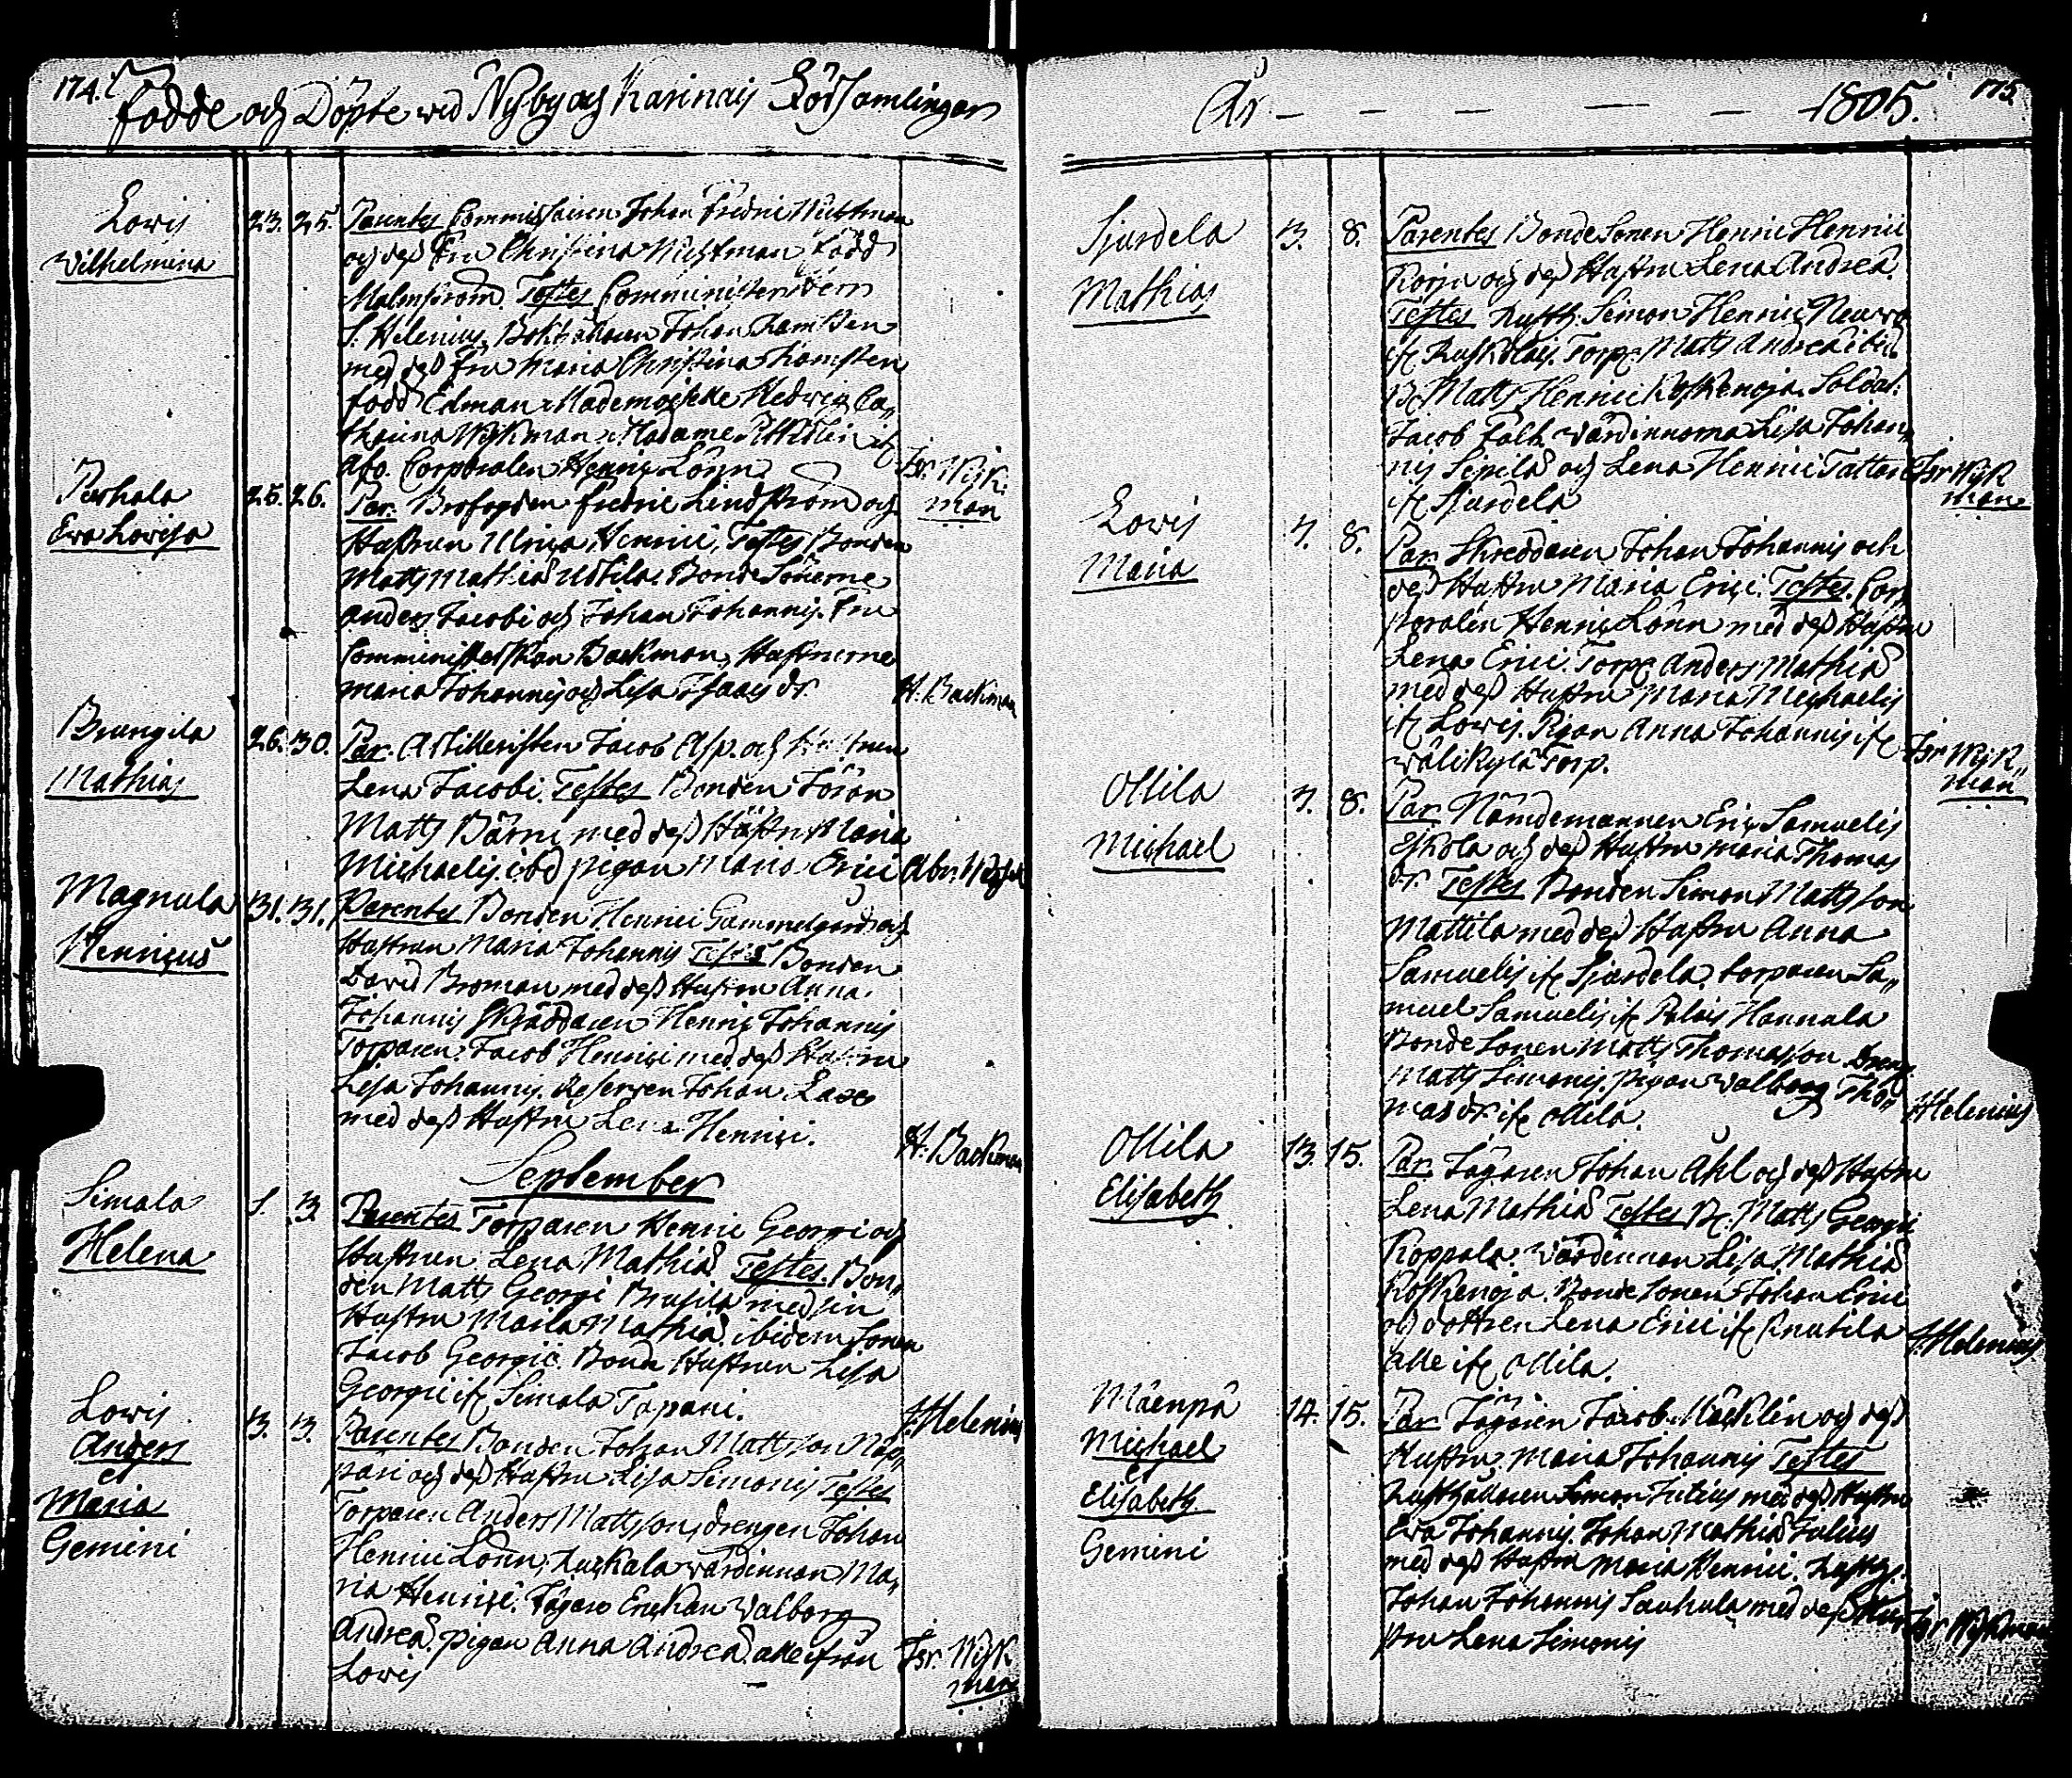 174.
Födde och Döpte wed Nyby och Karinais Församlingar
Lovis
Wilhelmina
23. 25.
Parentes Commissairen Johan Fredric Wistman
och dess Fru Christina Wistman född
Malmström. Testes Comministern Herr
J. Helenius. Bokhållaren Johan Ramsten
med dess Fru Maria Christina Ramsten
född Edman. Mademoiselle Hedwig Ca„
tharina Wijkman. Madame
Abo. Corporalen Henric Lönn
Isr. Wijk„
man
Perhala
Eva Lovisa
25. 26.
Par. Brofogden Fredric Lindström och
Hustrun Ulrica Henrici, Testes Bonden
Matts Mathiæ Uotila. Bonde Sönerne
Anders Jacobi och Johan Johannis. Fru
Comministerskan Backman, Hustrurne
Maria Johannis och Lisa Isaacs dr.
H. Backman
Brangila
Mathias
26. 30.
Par. Artilleristen Jacob Asp. och Hustrun
Lena Jacobi. Testes Bonden Jöran
Matts Bärni med dess Hustru Maria
Michaelis ibd pigan Maria Erici
Abr.
Magnula
Henricus
31. 31.
Parentes Bonden Henrici Gammelgård och
Hustrun Maria Johannis Testes Bonden
David Broman med dess Hustru Anna
Johannis Skräddaren Henric Johannis
Torparen Jacob Henrici med dess Hustru
Lisa Johannis. Reserven Johan Laxe
med dess Hustru Lena Henrici.
H. Backman
September
Simala
Helena
1. 3.
Parentes Torparen Henric Georgi och
Hustrun Lena Mathiæ Testes. Bon„
den Matts Georgi Brusila med sin
Hustru Maria Mathiæ. ibidem Sonen
Jacob Georgii Bonde Hustrun Lisa
Georgii if Simala Tapani.
J. Helenius
Lovis
Anders
et
Maria
Gemini
3. 3.
Parentes Bonden Johan Mattsson Näp„
päri och dess Hustru Lisa Simonis Testes
Torparen Anders Mattsson, drengen Johan
Henric Lönn, Ruskala wärdinnan Ma„
ria Henrici. Jägare Enckan Walborg
Andreæ. pigan Anna Andreæ. alle ifrån
Lovis
Isr. Wijk
man
År — — — — — 1805.
175.
Sjurdela
Mathias
3. 8.
Parentes Bonde Sonen Henric Henrici
och dess Hustru Lena Andreæ
Testes Rusth. Simon Henric
if Ruskolais. Torp. Matts Andreæ ibid.
B. Matts Henrici Koskenoja. Soldat.
Jacob Falk. wärdinnorna Lisa Johan„
nis Sipilä och Lena Henrici Tattari
if Sjurdela
Isr. Wijk
man
Lovis
Maria
7. 8.
Par. Skreddaren Johan Johannis och
dess Hustru Maria Erici. Testes. Cor„
poralen Henric Lönn med dess Hustru
Lena Erici. Torp. Anders Mathiæ
med dess Hustru Maria Michaelis
if Lovis. Pigan Anna Johannis if
wälikylä Torp.
Isr. Wijk„
man
Ollila
Michael
7. 8.
Par. Nämdemannen Eric Samuelis
Eskola och dess Hustru Maria Thomas
dr. Testes Bonden Simon Mattsson
Mattila med dess Hustru Anna
Samuelis if Sjurdela. torparen Sa„
muel Samuelis if Pelais Hannula
Bonde Sonen Matts Thomasson Dreng.
Matts Simonis, pigan Walborg Tho„
mas dr. if Ollila.
J. Helenius
Ollila
Elisabeth
13. 15.
Par. Jägaren Johan Åhl och dess Hustru
Lena Mathiæ Testes B. Matts Georgii
Koppala. wärdinnan Lisa Mathiæ
Koskenoja. Bonde Sonen Johan Erici
och dottren Lena Erici if Knutila
alle if Ollila.
J. Helenius
Mäenpä
Michael
et
Elisabeth
Gemini
14. 15.
Par. Jägaren Jacob Mäcklin och dess
Hustru Maria Johannis Testes
Rusthållaren Simon Julius med dess Hustru
Eva Johannis. Johan Mathiæ Julius
med dess Hustru Maria Henrici. Rusth.
Johan Johannis Sauhula med dess Hu„
stru Lena Simonis
Isr Wijkman